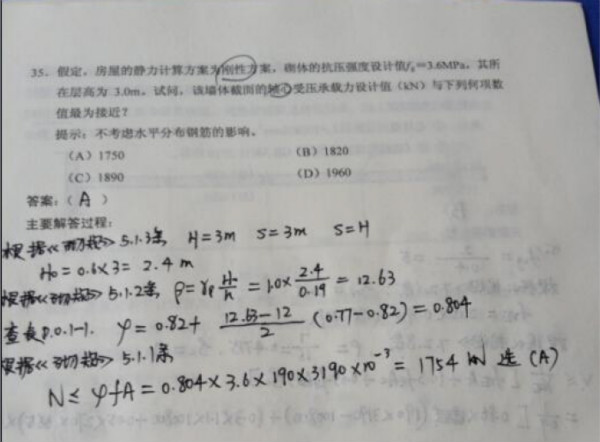 35. 假定，房屋的静力计算方案为刚性方案，砌体的抗压强度设计值fg=3.6MPa，其所
在层高为 3.0m。试问，该墙体截面的轴心受压承载力设计值（kN）与下列何项数
值最为接近？
提示：不考虑水平分布钢筋的影响。
（A）1750 （B）1820
（C）1890 （D）1960
答案：（ A ）
主要解答过程：
根据《砌规》5.1.3条 H=3m S=3m S=H
H₀=0.6×3=2.4m
根据《砌规》5.1.2条 β=γβ H/h = 1.0× 2.4/0.19 = 12.63
查表D.0.1-1. φ=0.82+ (12.63-12)/2 (0.77-0.82)=0.804
根据《砌规》5.1.1条
N≤φfA=0.804×3.6×190×3190×10⁻³=1754kN 选(A)